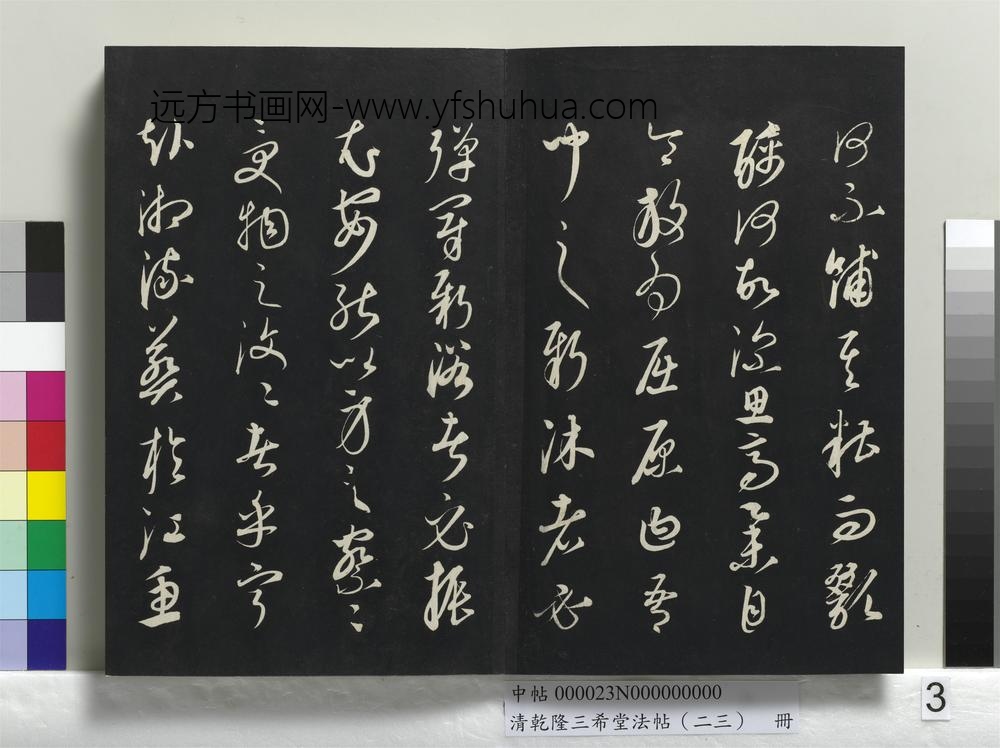 远方书画网-www.yfshuhua.com
何不餔其糟而歠
醨何故深思高舉自
令放為屈原曰吾
聞之新沐者必
彈冠新浴者必振
衣安能以身之察〻
受物之汶〻者乎寧
赴湘流葬於江魚
中帖 000023N000000000
清乾隆三希堂法帖（二三） 冊
3